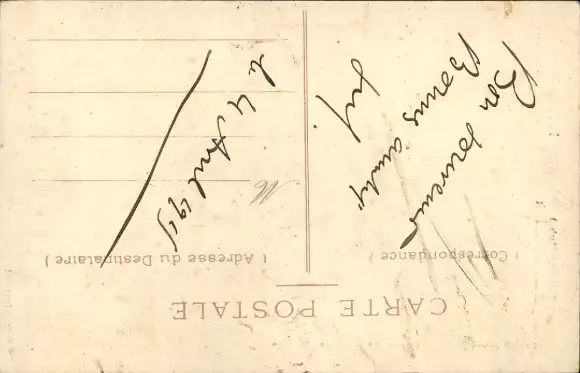 CARTE POSTALE
( Correspondance )
( Adresse du Destinataire )
M
Bon souvenir
Bonne amitié
le 4 Avril 1915